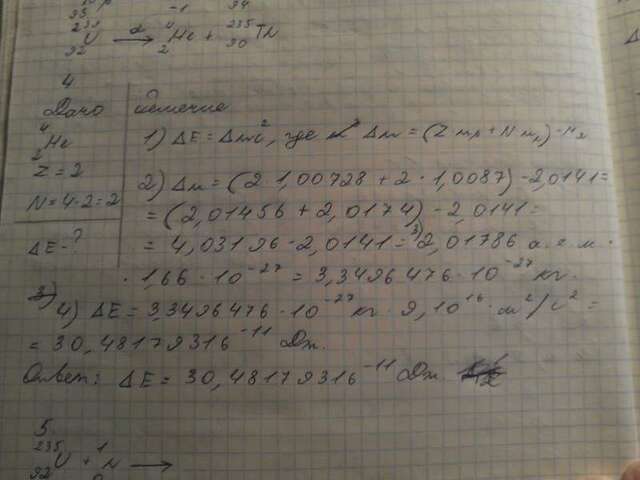 239 92 U —α→ 4 2 He + 235 90 Th
4
Дано
4 2 He
Z = 2
N = 4 - 2 = 2
ΔE - ?
решение
1) ΔE = Δmc², где Δm = (Z mp + N mn) - Mя
2) Δm = (2 · 1,00728 + 2 · 1,0087) - 2,0141 =
= (2,01456 + 2,0174) - 2,0141 =
= 4,03196 - 2,0141 = 2,01786 а. е. м. ·
· 1,66 · 10⁻²⁷ = 3,3496476 · 10⁻²⁷ кг.
4) ΔE = 3,3496476 · 10⁻²⁷ кг · 9,10¹⁶ · м²/с² =
= 30,48179316⁻¹¹ Дж.
Ответ: ΔE = 30,48179316⁻¹¹ Дж.
5.
235 92 U + 1 0 N ⟶